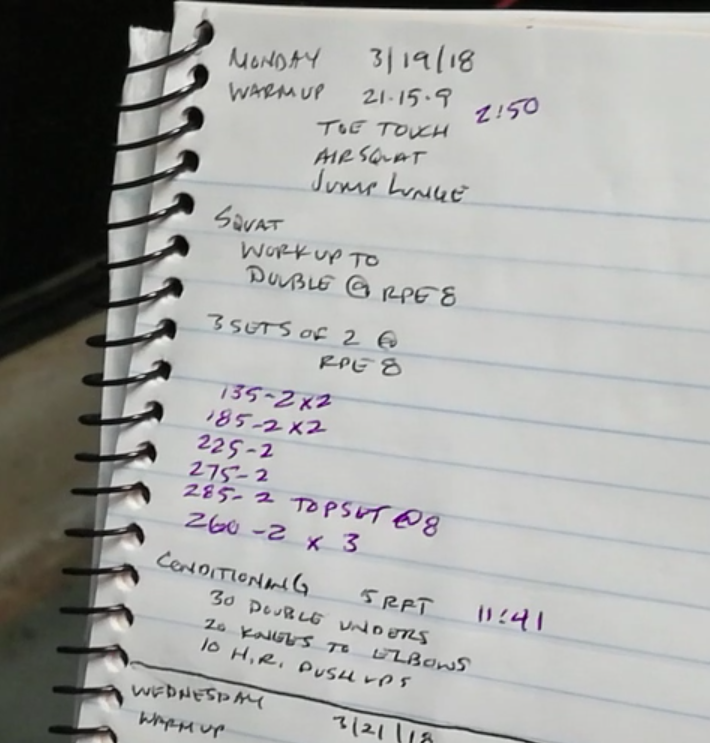 MONDAY 3/19/18
WARMUP 21-15-9 2:50
TOE TOUCH
AIR SQUAT
JUMP LUNGE
SQUAT
WORK UP TO
DOUBLE @ RPE 8
3 SETS OF 2 @
RPE 8
135-2x2
185-2x2
225-2
275-2
285-2 TOPSET @8
260-2 x 3
CONDITIONING 5 RFT 11:41
30 DOUBLE UNDERS
20 KNEES TO ELBOWS
10 H.R. PUSHUPS
WEDNESDAY 3/21/18
WARMUP